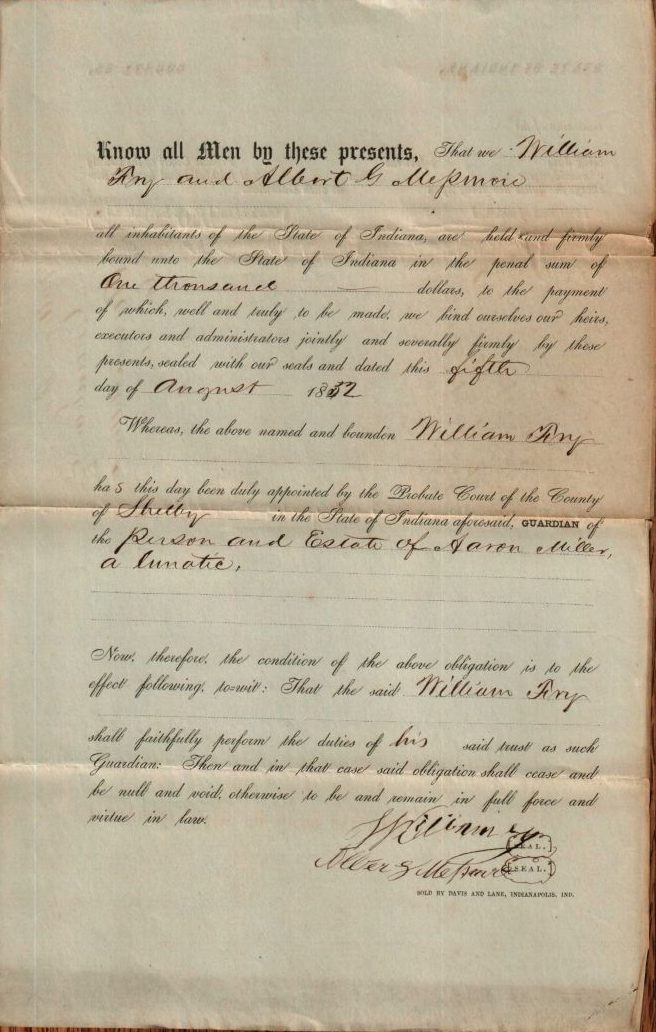 Know all Men by these presents, That we William
Fry and Albert G Meſsmore
all inhabitants of the State of Indiana, are held and firmly
bound unto the State of Indiana in the penal sum of
One thousand dollars, to the payment
of which, well and truly to be made, we bind ourselves our heirs,
executors and administrators jointly and severally firmly by these
presents, sealed with our seals and dated this fifth
day of August 1852
Whereas, the above named and bounden William Fry
has this day been duly appointed by the Probate Court of the County
of Shelby in the State of Indiana aforesaid, GUARDIAN of
the person and Estate of Aaron Miller,
a lunatic,
Now, therefore, the condition of the above obligation is to the
effect following, to=wit: That the said William Fry
shall faithfully perform the duties of his said trust as such
Guardian: Then and in that case said obligation shall cease and
be null and void, otherwise to be and remain in full force and
virtue in law.
William Fry SEAL.
G Meſsmore SEAL.
SOLD BY DAVIS AND LANE, INDIANAPOLIS, IND.